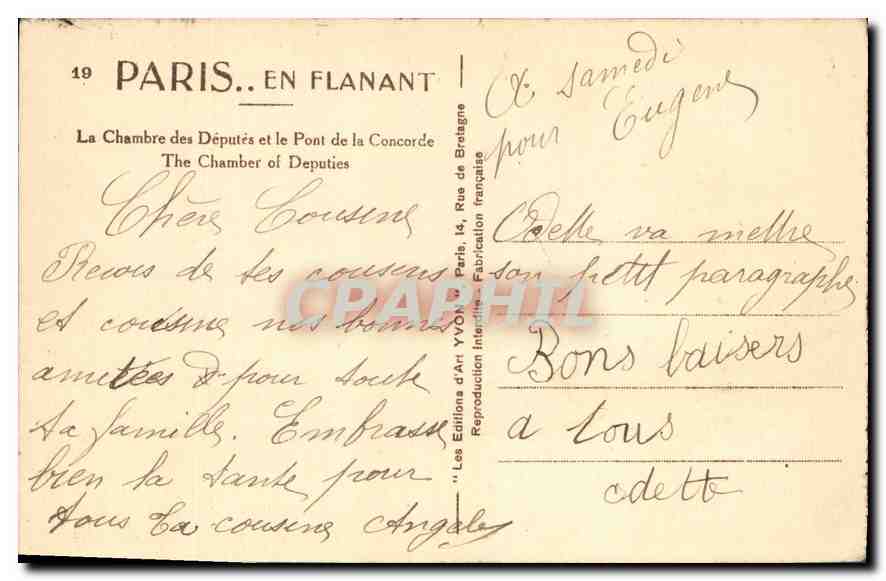 19 PARIS.. EN FLANANT
La Chambre des Députés et le Pont de la Concorde
The Chamber of Deputies
Chère Cousine
Recois de tes cousins
et cousine nos bonnes
amitées & pour toute
ta famille. Embrasse
bien la tante pour
tous ta cousine Angele
" Les Editions d'Art YVON " Paris, 14, Rue de Bretagne
Reproduction Interdite - Fabrication française
samedi
pour Eugene
Odette va mettre
son petit paragraphe
Bons baisers
a tous
odette
CPAPHIL